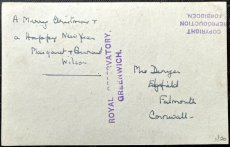 A Merry Christmas &
a Happy New Year
Margaret &
Wilson
ROYAL OBSERVATORY,
GREENWICH.
COPYRIGHT
REPRODUCTION
FORBIDDEN
Mrs Dwyer
Falmouth
Cornwall